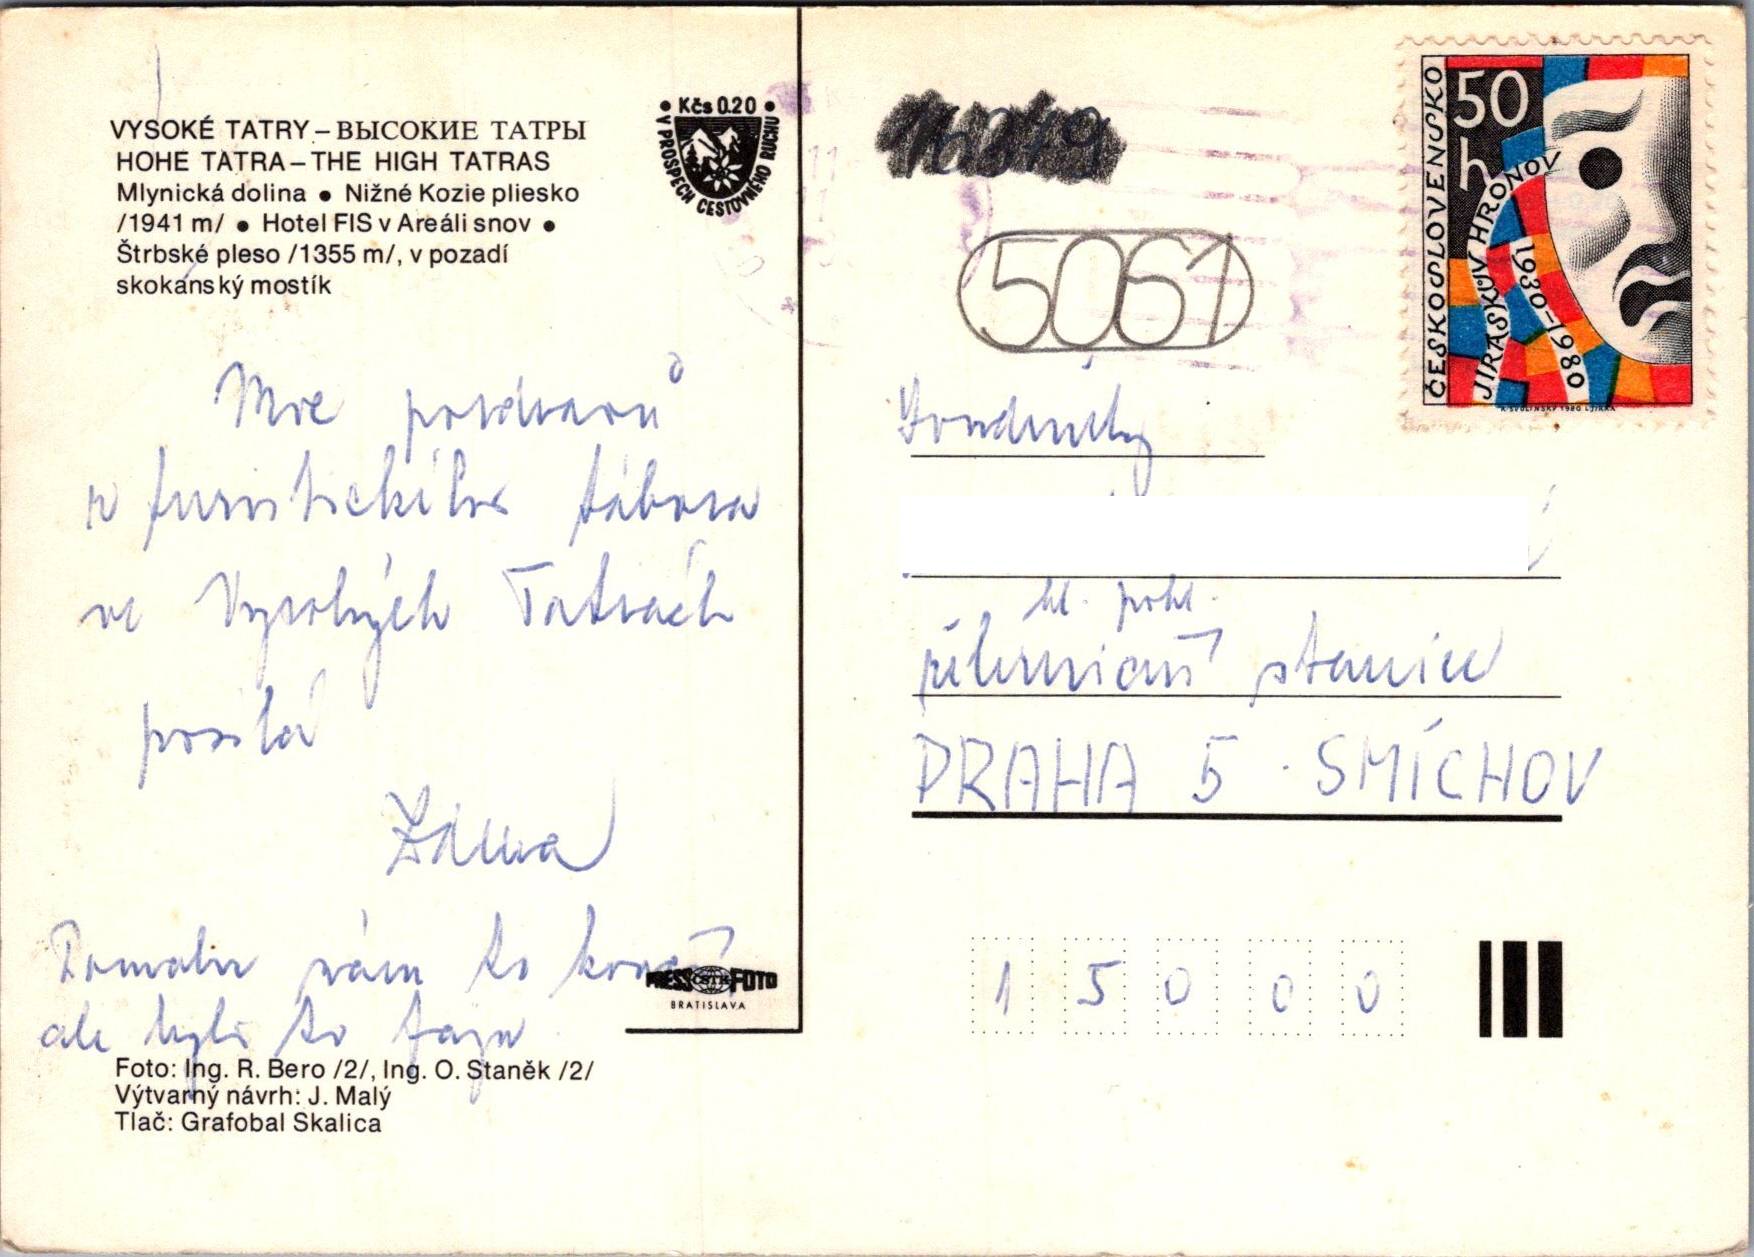 VYSOKÉ TATRY – ВЫСОКИЕ ТАТРЫ
HOHE TATRA – THE HIGH TATRAS
Mlynická dolina ● Nižné Kozie pliesko
/1941 m/ ● Hotel FIS v Areáli snov ●
Štrbské pleso /1355 m/, v pozadí
skokanský mostík
• Kčs 0.20 •
V PROSPECH CESTOVNÉHO RUCHU
Moc pozdravů
z turistického tábora
ve Vysokých Tatrách
posílá
Zdena
Pomalu nám to končí
ale bylo to fajn
PRESS ČSTK FOTO
BRATISLAVA
Foto: Ing. R. Bero /2/, Ing. O. Staněk /2/
Výtvarný návrh: J. Malý
Tlač: Grafobal Skalica
5061
ČESKOSLOVENSKO
50 h
JIRÁSKŮV HRONOV
1930–1980
K. SVOLINSKÝ 1980 L. JIRKA
Soudružky
hl. pokl.
železniční stanice
PRAHA 5 - SMÍCHOV
15000